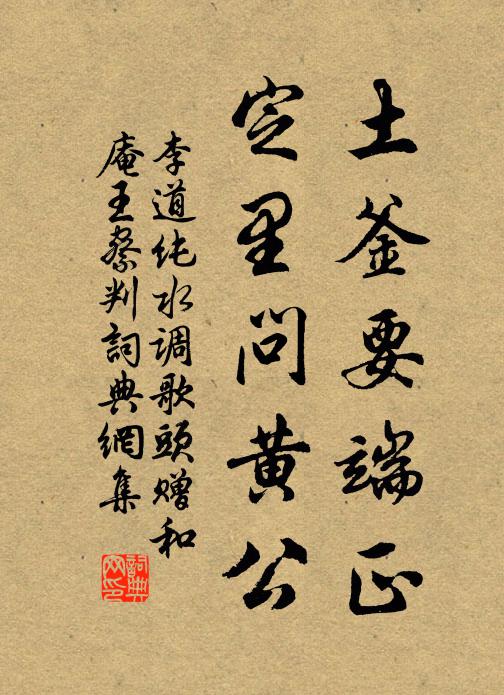 土釜要端正
定里问黄公
李道纯水调歌头赠和
庵王察判词典网集
词典网印